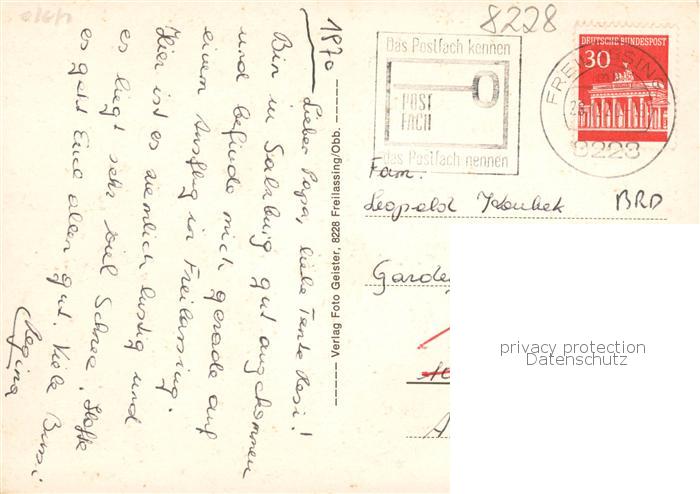 1970
Lieber Papa, liebe Tante Resi!
Bin in Salzburg gut angekommen
und befinde mich gerade auf
einem Ausflug in Freilassing.
Hier ist es ziemlich lustig und
es liegt sehr viel Schnee. Hoffe
es geht Euch allen gut. Viele Bussi
Regina
Verlag Foto Geister, 8228 Freilassing/Obb.
8228
Das Postfach kennen
POST
FACH
das Postfach nennen
DEUTSCHE BUNDESPOST
30
FREILASSING
8228
Fam.
Leopold BRD
privacy protection
Datenschutz